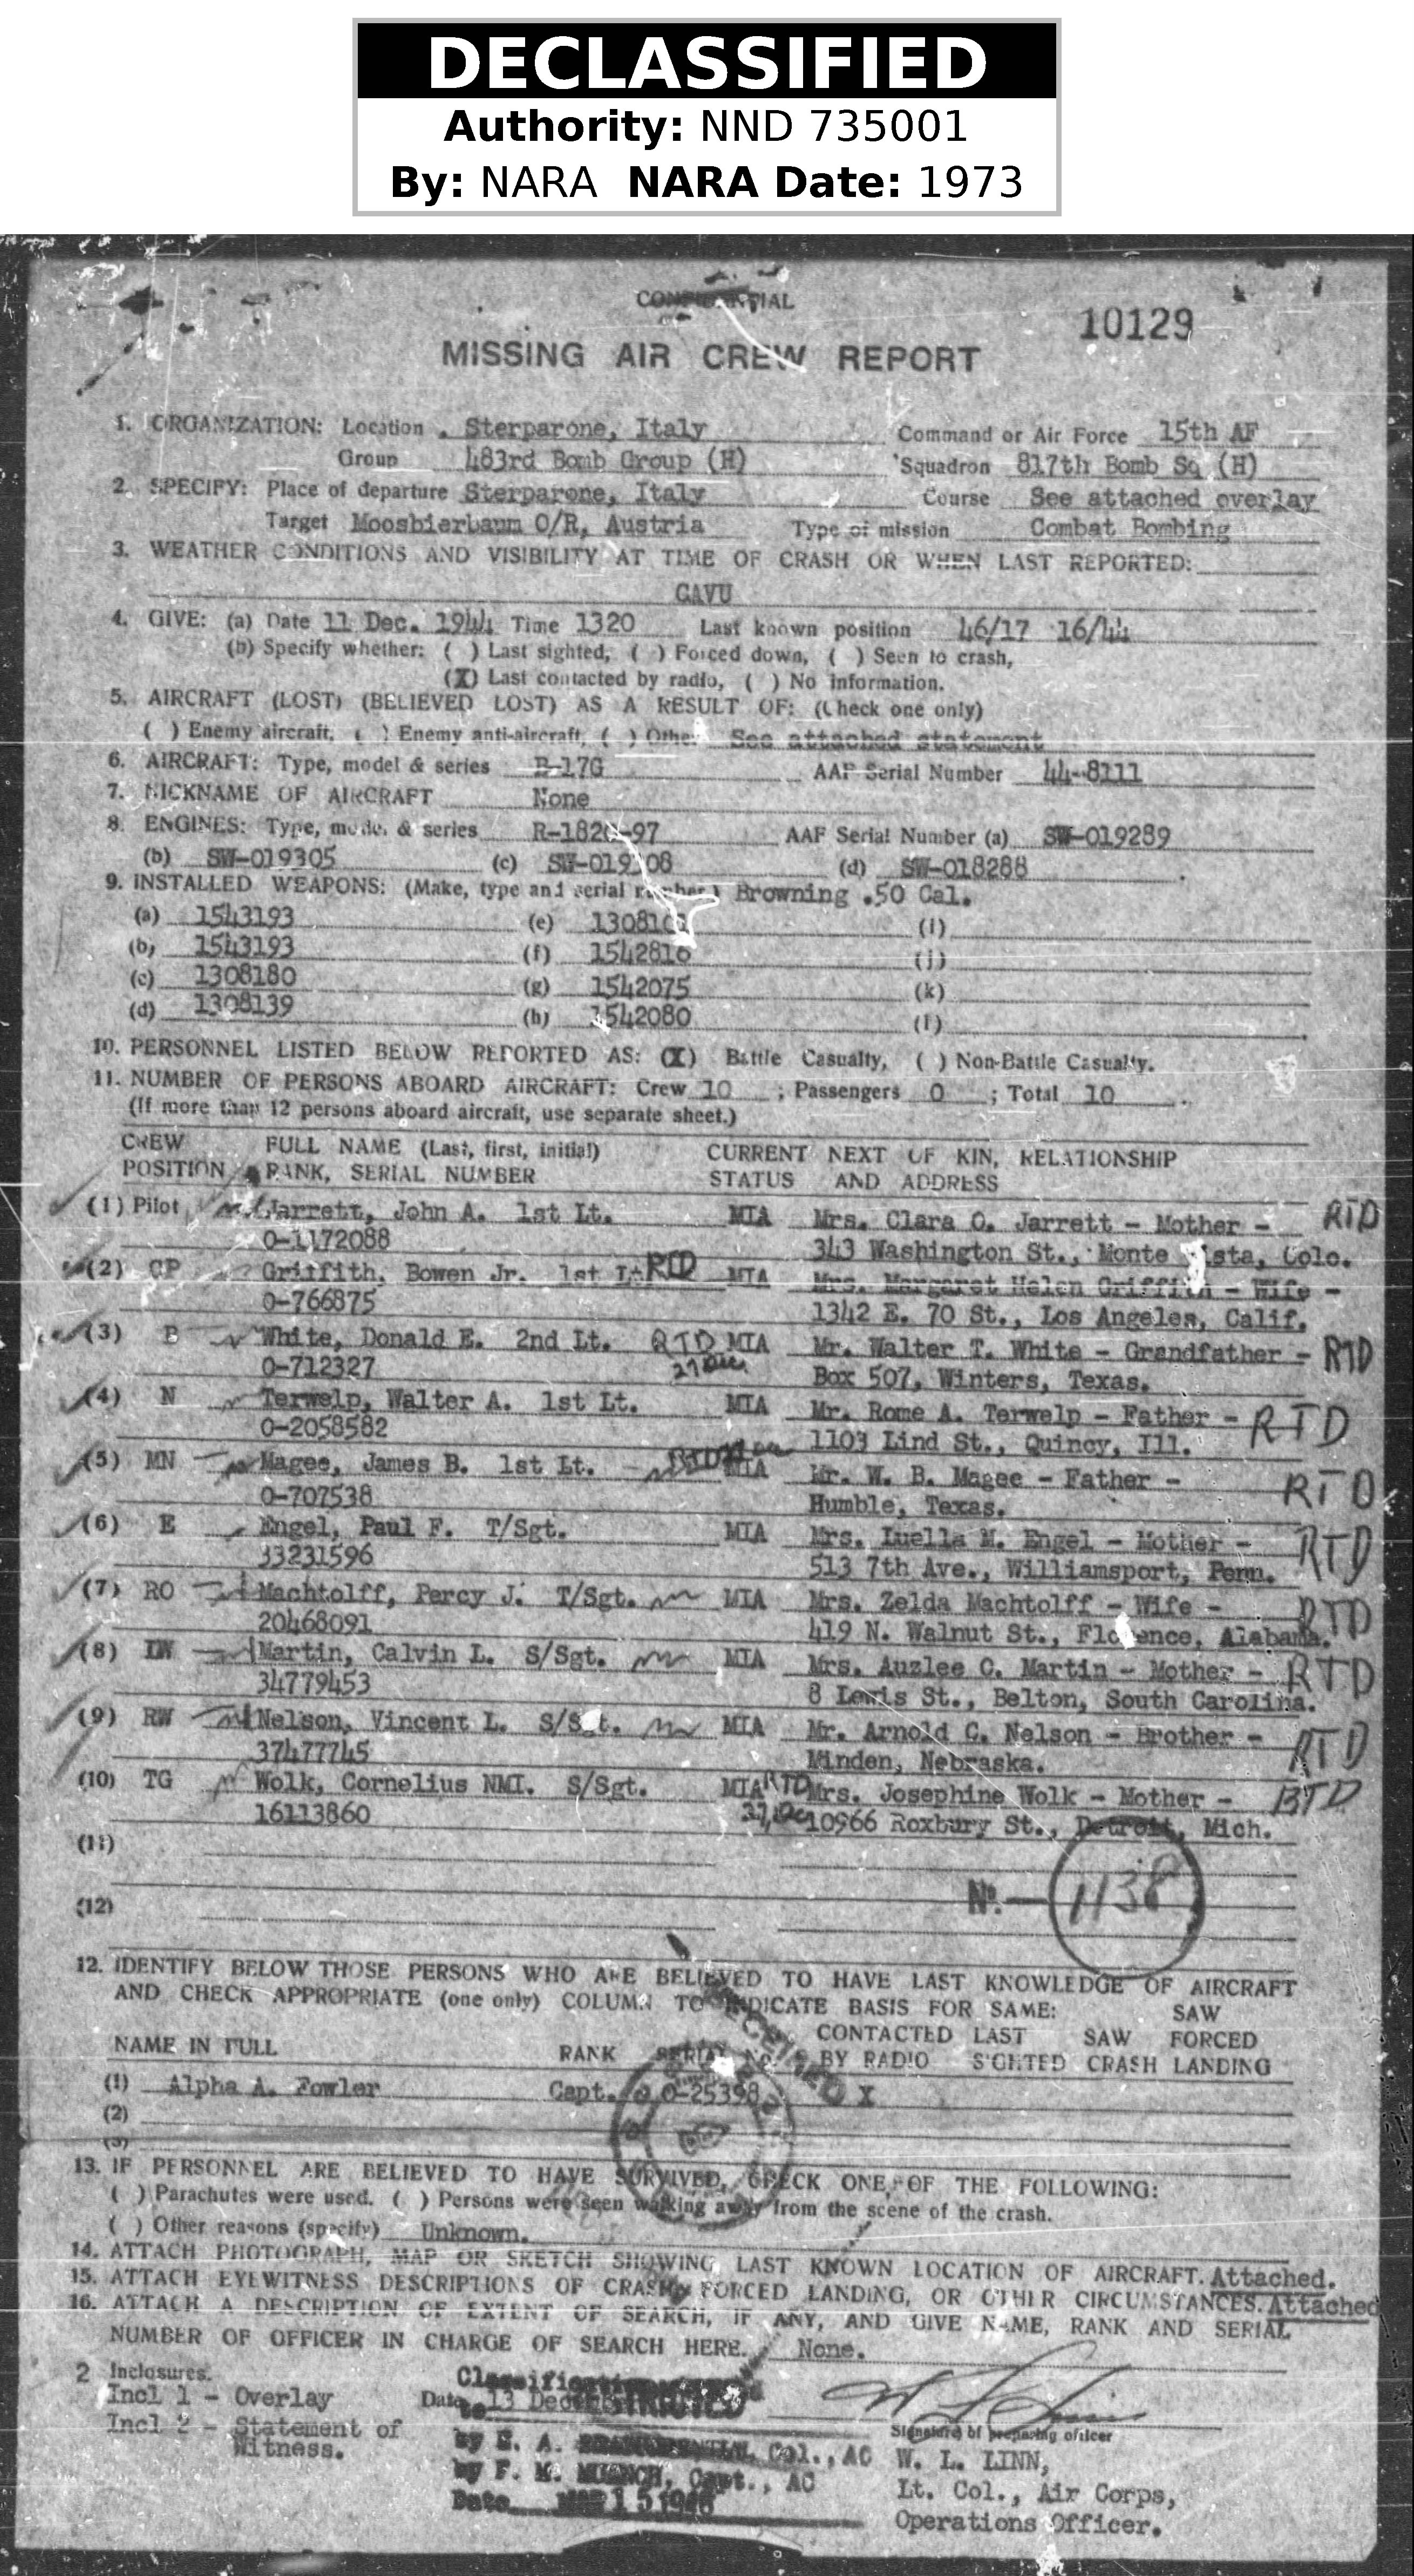 DECLASSIFIED
Authority: NND 735001
By: NARA NARA Date: 1973
CONFIDENTIAL
10129
MISSING AIR CREW REPORT
1. ORGANIZATION: Location Sterparone, Italy Command or Air Force 15th AF
Group 483rd Bomb Group (H) Squadron 817th Bomb Sq (H)
2. SPECIFY: Place of departure Sterparone, Italy Course See attached overlay
Target Moosbierbaum O/R, Austria Type of mission Combat Bombing
3. WEATHER CONDITIONS AND VISIBILITY AT TIME OF CRASH OR WHEN LAST REPORTED:
CAVU
4. GIVE: (a) Date 11 Dec. 1944 Time 1320 Last known position 46/17 16/44
(b) Specify whether: ( ) Last sighted, ( ) Forced down, ( ) Seen to crash,
(X) Last contacted by radio, ( ) No information.
5. AIRCRAFT (LOST) (BELIEVED LOST) AS A RESULT OF: (Check one only)
( ) Enemy aircraft, ( ) Enemy anti-aircraft, ( ) Other See attached statement
6. AIRCRAFT: Type, model & series B-17G AAF Serial Number 44-8111
7. NICKNAME OF AIRCRAFT None
8. ENGINES: Type, model & series R-1820-97 AAF Serial Number (a) SW-019289
(b) SW-019305 (c) (d) SW-018288
9. INSTALLED WEAPONS: (Make, type and serial number) Browning .50 Cal.
(a) 1543193 (e) (i)
(b) 1543193 (f) 1542816 (j)
(c) 1308180 (g) 1542075 (k)
(d) 1308139 (h) 1542080 (l)
10. PERSONNEL LISTED BELOW REPORTED AS: (X) Battle Casualty, ( ) Non-Battle Casualty.
11. NUMBER OF PERSONS ABOARD AIRCRAFT: Crew 10 ; Passengers 0 ; Total 10
(If more than 12 persons aboard aircraft, use separate sheet.)
CREW FULL NAME (Last, first, initial) CURRENT NEXT OF KIN, RELATIONSHIP
POSITION RANK, SERIAL NUMBER STATUS AND ADDRESS
(1) Pilot Jarrett, John A. 1st Lt. MIA Mrs. Clara O. Jarrett - Mother - RTD
0-1172088 343 Washington St., Monte Vista, Colo.
(2) CP Griffith, Bowen Jr. 1st Lt. RTD MIA Mrs. Margaret Helen Griffith - Wife -
0-766875 1342 E. 70 St., Los Angeles, Calif.
(3) B White, Donald E. 2nd Lt. RTD MIA Mr. Walter T. White - Grandfather - RTD
0-712327 27 Dec Box 507, Winters, Texas.
(4) N Terwelp, Walter A. 1st Lt. MIA Mr. Rome A. Terwelp - Father - RTD
0-2058582 1103 Lind St., Quincy, Ill.
(5) MN Magee, James B. 1st Lt. RTD MIA Mr. W. B. Magee - Father - RTD
0-707538 Humble, Texas.
(6) E Engel, Paul F. T/Sgt. MIA Mrs. Luella M. Engel - Mother - RTD
33231596 513 7th Ave., Williamsport, Penn.
(7) RO Machtolff, Percy J. T/Sgt. MIA Mrs. Zelda Machtolff - Wife - RTD
20468091 419 N. Walnut St., Florence, Alabama.
(8) LW Martin, Calvin L. S/Sgt. MIA Mrs. Auzlee C. Martin - Mother - RTD
34779453 8 Lewis St., Belton, South Carolina.
(9) RW Nelson, Vincent L. S/Sgt. MIA Mr. Arnold C. Nelson - Brother - RTD
37477745 Minden, Nebraska.
(10) TG Wolk, Cornelius NMI. S/Sgt. MIA RTD Mrs. Josephine Wolk - Mother - RTD
16113860 27 Dec 10966 Roxbury St., Detroit, Mich.
(11)
No. — 1138
(12)
12. IDENTIFY BELOW THOSE PERSONS WHO ARE BELIEVED TO HAVE LAST KNOWLEDGE OF AIRCRAFT
AND CHECK APPROPRIATE (one only) COLUMN TO INDICATE BASIS FOR SAME: SAW
CONTACTED LAST SAW FORCED
NAME IN FULL RANK SERIAL No. BY RADIO SIGHTED CRASH LANDING
(1) Alpha A. Fowler Capt. 0-25398 X
(2)
(3)
13. IF PERSONNEL ARE BELIEVED TO HAVE SURVIVED, CHECK ONE OF THE FOLLOWING:
( ) Parachutes were used. ( ) Persons were seen walking away from the scene of the crash.
( ) Other reasons (specify) Unknown.
14. ATTACH PHOTOGRAPH, MAP OR SKETCH SHOWING LAST KNOWN LOCATION OF AIRCRAFT. Attached.
15. ATTACH EYEWITNESS DESCRIPTIONS OF CRASH, FORCED LANDING, OR OTHER CIRCUMSTANCES. Attached
16. ATTACH A DESCRIPTION OF EXTENT OF SEARCH, IF ANY, AND GIVE NAME, RANK AND SERIAL
NUMBER OF OFFICER IN CHARGE OF SEARCH HERE. None.
2 Inclosures.
Incl 1 - Overlay
Incl 2 - Statement of
Witness.
Classification
Date 13 December
to RESTRICTED
by E. A. Col., AC
by F. M. Capt., AC
Date MAR 15 1946
Signature of preparing officer
W. L. LINN,
Lt. Col., Air Corps,
Operations Officer.